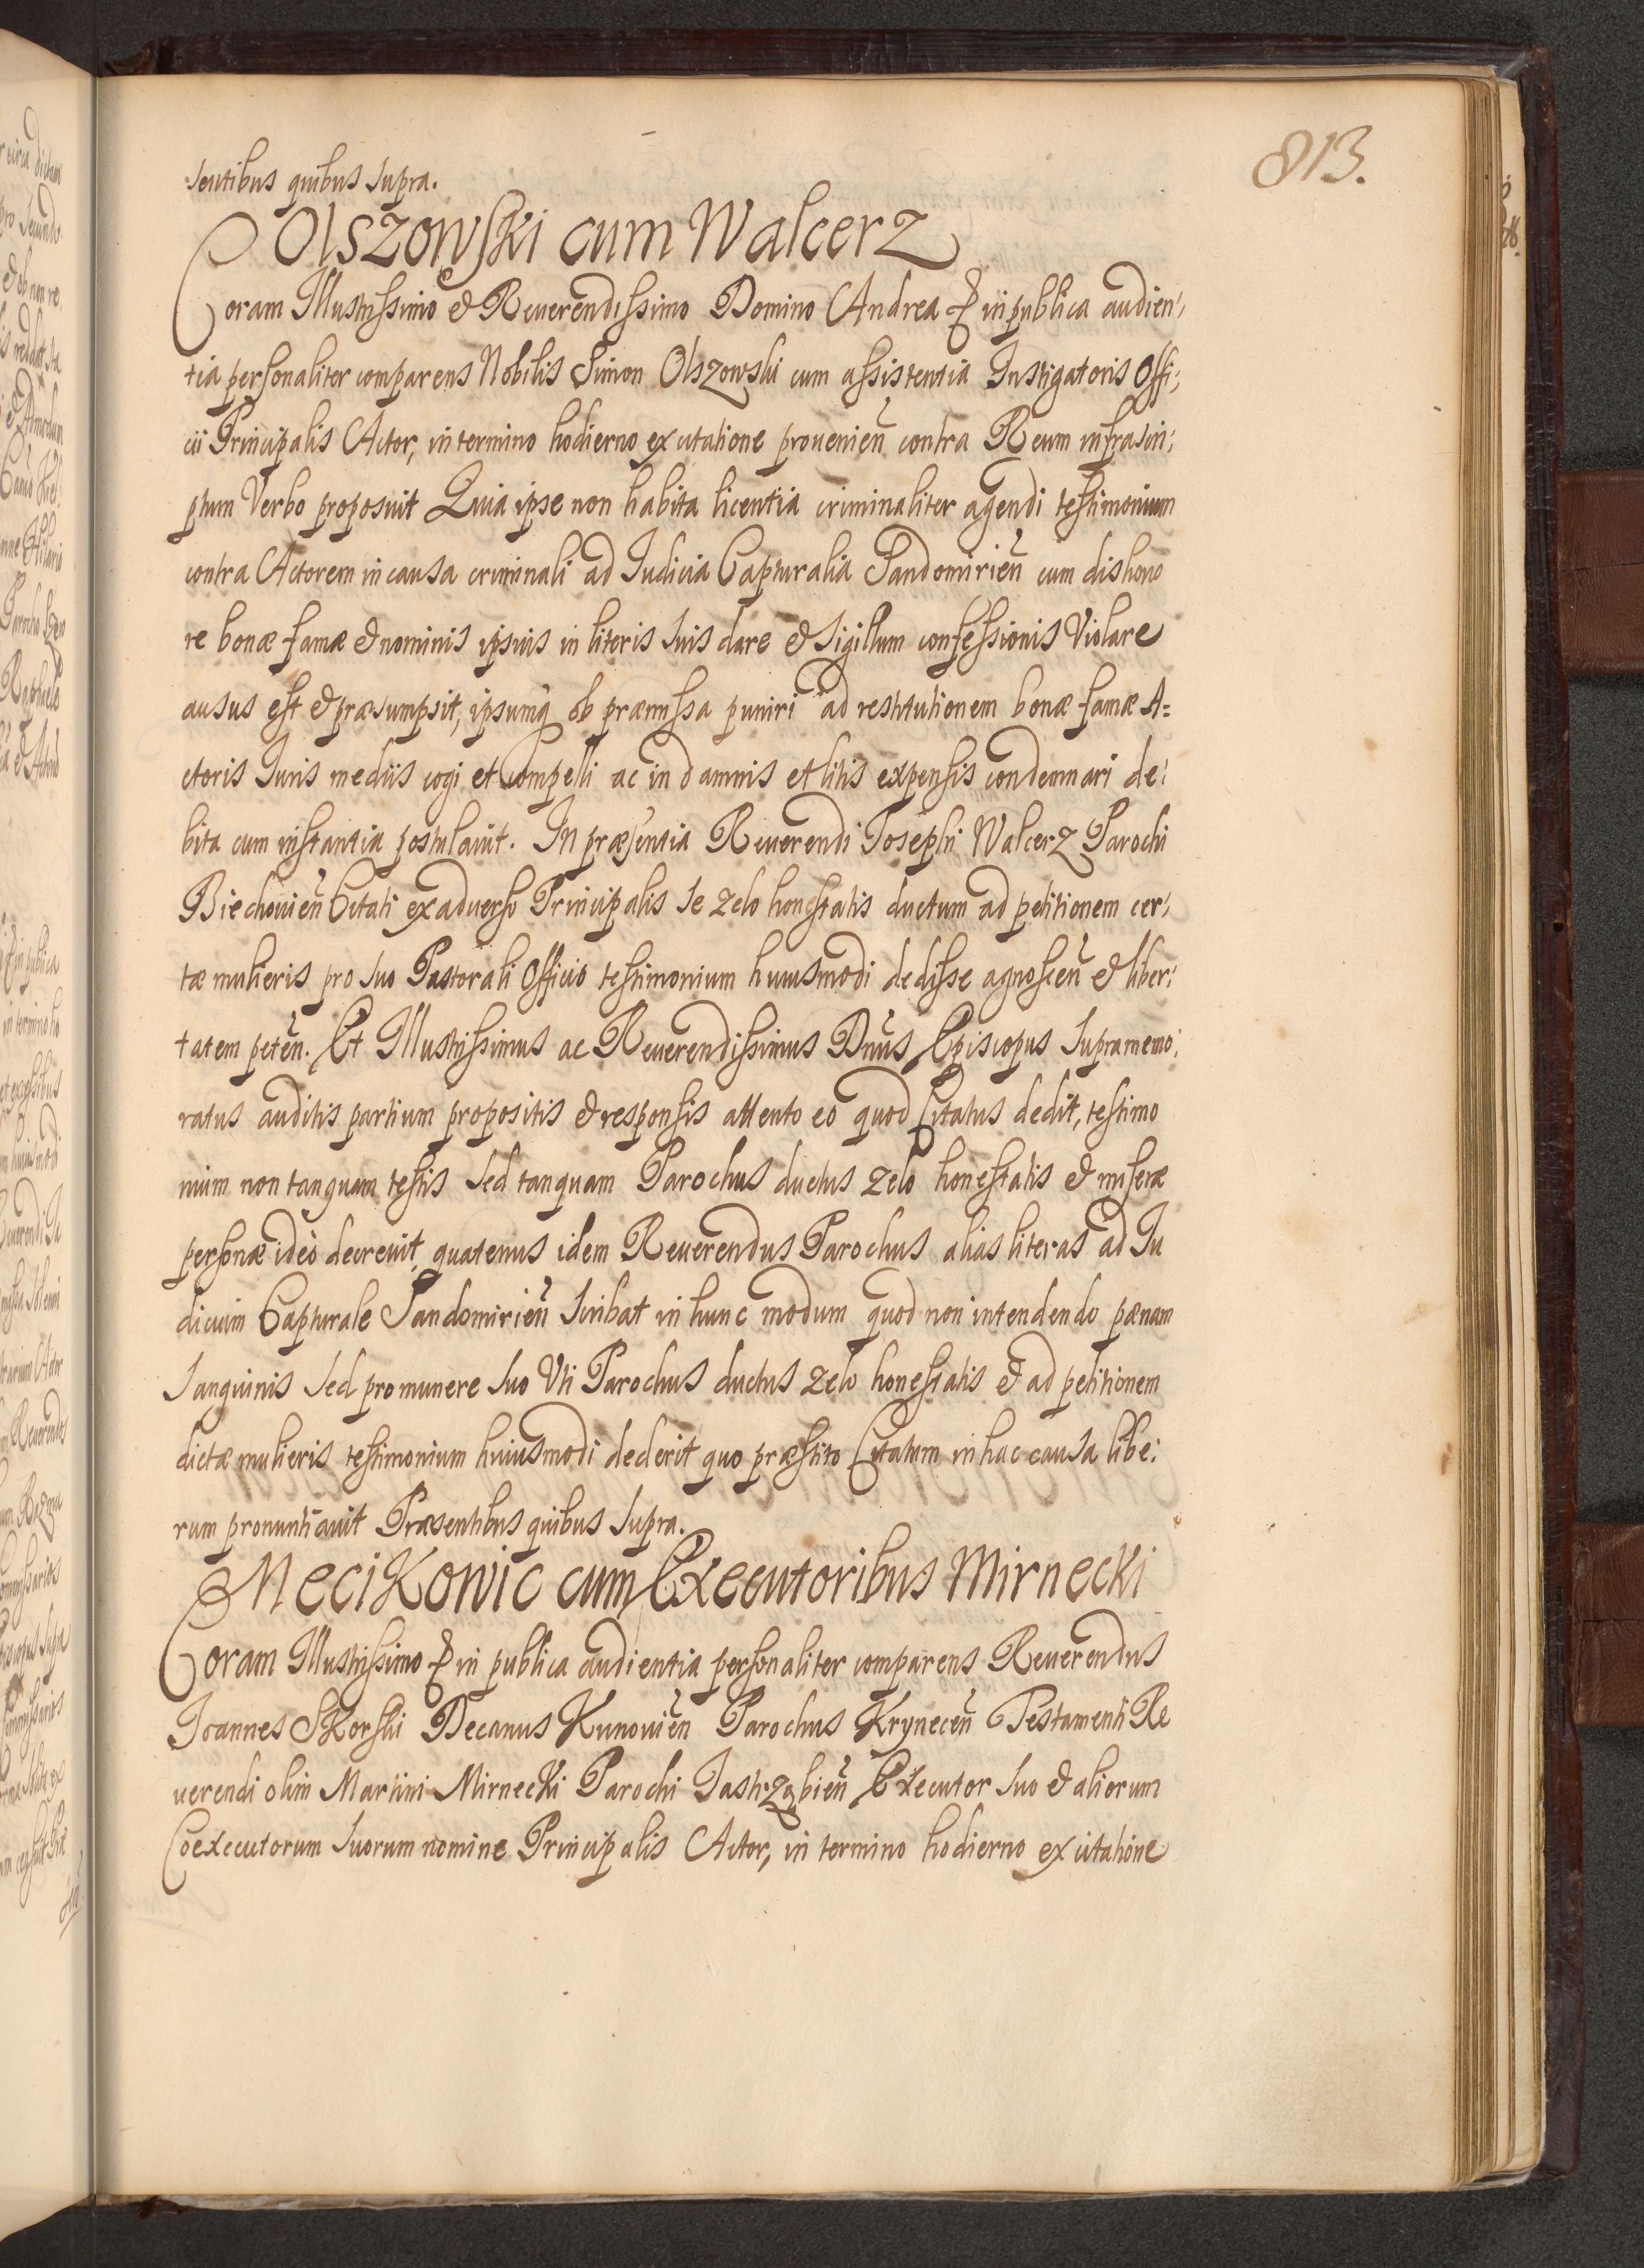 813.
sentibus quibus supra.
Olszowski cum Walcerz
Coram Illustrissimo & Reuerendissimo Domino Andrea & in publica audien:
tia personaliter comparens Nobilis Simon Olszowski cum assistentia Instigatoris Offi:
cii Principalis Actor, in termino hodierno ex citatione prouenien̄ contra Reum infrascri:
ptum Verbo proposuit Quia ipse non habita licentia criminaliter agendi testimonium
contra Actorem in causa criminali ad Iudicia Capturalia Sandomirien̄ cum dishono
re bonæ famæ & nominis ipsius in literis suis dare & sigillum confessionis Violare
ausus est & præsumpsit, ipsumq ob præmissa puniri ad restitutionem bonæ famæ A=
ctoris Iuris mediis cogi et compelli ac in damnis et litis expensis condemnari de:
bita cum instantia postulauit. In præsentia Reuerendi Iosephi Walcerz Parochi
Biechouien̄ Citati ex aduerso Principalis se zelo honestatis ductum ad petitionem cer:
tæ mulieris pro suo Pastorali Officio testimonium huiusmodi dedisse agnoscen̄ & liber:
tatem peten̄. Et Illustrissimus ac Reuerendissimus Dnūs Episcopus supramemo:
ratus auditis partium propositis & responsis attento eo quod Citatus dedit, testimo
nium non tanquam testis sed tanquam Parochus ductus zelo honestatis & miseræ
personæ ideò decreuit, quatenus idem Reuerendus Parochus alias literas ad Iu
dicium Capturale Sandomirien̄ scribat in hunc modum quod non intendendo pænam
sanguinis sed pro munere suo Vti Parochus ductus zelo honestatis & ad petitionem
dictæ mulieris testimonium huiusmodi dederit quo præstito Citatum in hac causa libe:
rum pronuntiauit Præsentibus quibus supra.
Mecikowic cum Executoribus Mirnecki
Coram Illustrissimo & in publica audientia personaliter comparens Reuerendus
Ioannes Skorski Decanus Kunouien̄ Parochus Krynecen̄ Testamenti Re
uerendi olim Martini Mirnecki Parochi Iastrząbien̄ Executor suo & aliorum
Coexecutorum suorum nomine Principalis Actor, in termino hodierno ex citatione